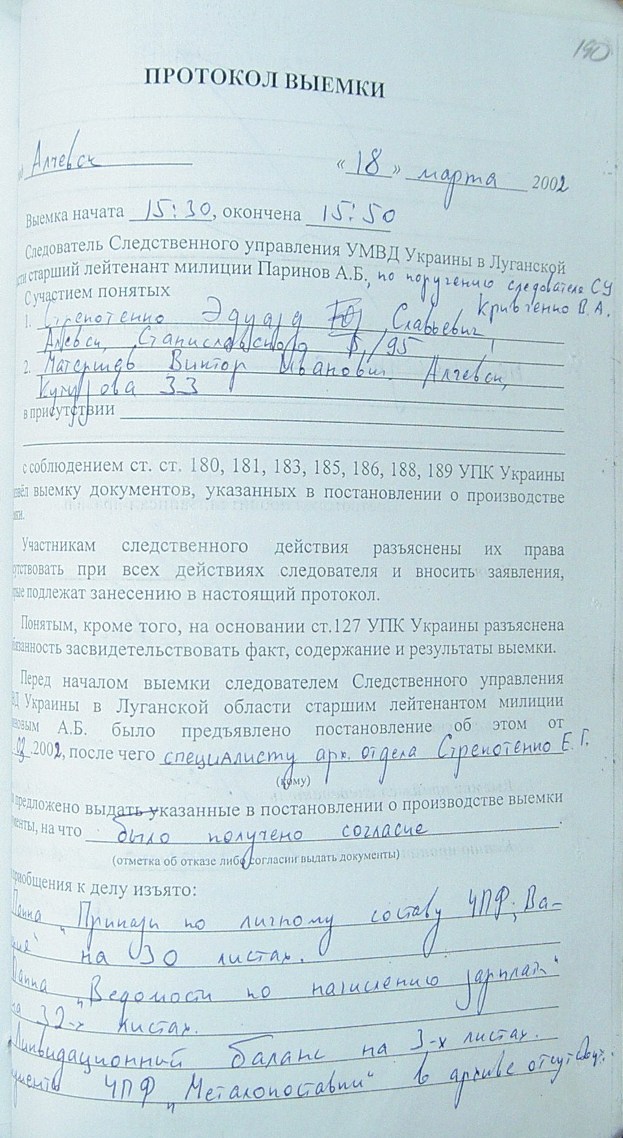 190
ПРОТОКОЛ ВЫЕМКИ
Алчевск « 18 » марта 2002
Выемка начата 15:30, окончена 15:50
Следователь Следственного управления УМВД Украины в Луганской
старший лейтенант милиции Паринов А.Б., по поручению следователя СУ
С участием понятых Кривченко В.А.
1. Эдуард Славьевич,
Алчевск, Станиславского /95
2. Виктор Иванович Алчевск,
33
в присутствии
с соблюдением ст. ст. 180, 181, 183, 185, 186, 188, 189 УПК Украины
выемку документов, указанных в постановлении о производстве
Участникам следственного действия разъяснены их права
при всех действиях следователя и вносить заявления,
подлежат занесению в настоящий протокол.
Понятым, кроме того, на основании ст.127 УПК Украины разъяснена
засвидетельствовать факт, содержание и результаты выемки.
Перед началом выемки следователем Следственного управления
Украины в Луганской области старшим лейтенантом милиции
А.Б. было предъявлено постановление об этом от
.2002, после чего специалисту арх. отдела Стрепотенко Е.Г.
(кому)
предложено выдать указанные в постановлении о производстве выемки
на что было получено согласие
(отметка об отказе либо согласии выдать документы)
к делу изъято:
Папка "Приказы по личному составу ЧПФ "Ва-
" на 30 листах.
Папка "Ведомости по начислению зарплаты"
на 32-х листах.
Ликвидационный баланс на 3-х листах.
ЧПФ "Металопоставки" в архиве отсутствуют.